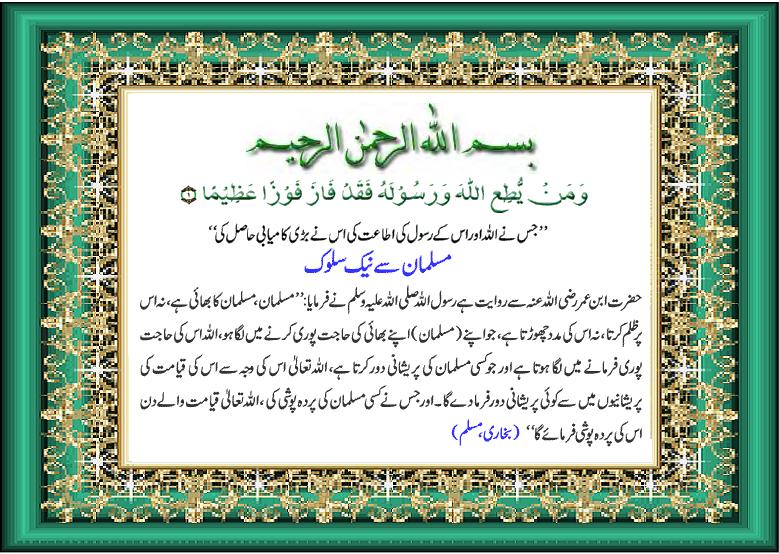 بسم الله الرحمن الرحيم
وَمَنْ يُّطِعِ اللّٰهَ وَرَسُوْلَهٗ فَقَدْ فَازَ فَوْزًا عَظِيْمًا
’’جس نے اللہ اور اس کے رسول کی اطاعت کی اس نے بڑی کامیابی حاصل کی‘‘
مسلمان سے نیک سلوک
حضرت ابن عمر رضی اللہ عنہ سے روایت ہے رسول اللہ صلی اللہ علیہ وسلم نے فرمایا: ’’مسلمان، مسلمان کا بھائی ہے، نہ اس
پر ظلم کرتا، نہ اس کی مدد چھوڑتا ہے، جو اپنے (مسلمان) اپنے بھائی کی حاجت پوری کرنے میں لگا ہو، اللہ اس کی حاجت
پوری فرمانے میں لگا ہوتا ہے اور جو کسی مسلمان کی پریشانی دور کرتا ہے، اللہ تعالیٰ اس کی وجہ سے اس کی قیامت کی
پریشانیوں میں سے کوئی پریشانی دور فرما دے گا۔ اور جس نے کسی مسلمان کی پردہ پوشی کی، اللہ تعالیٰ قیامت والے دن
اس کی پردہ پوشی فرمائے گا‘‘ (بخاری، مسلم)